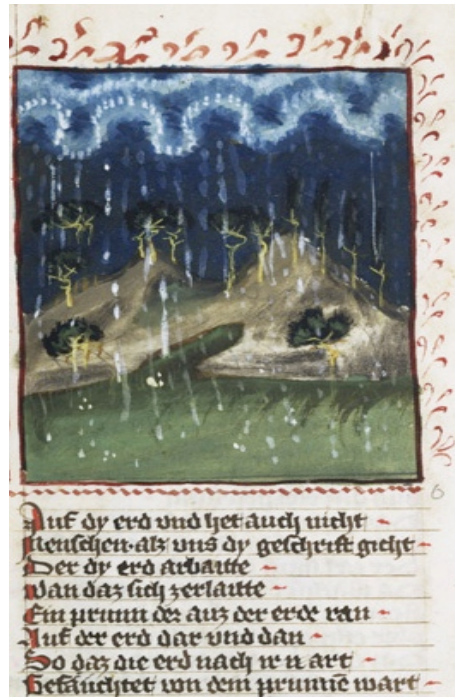 6
Auf dy erd vnd het auch nicht
Menschen als vns dy geschrift gicht
Der dy erd arbaitte
Wan daz sich zerlaitte
Ein prunn der auz der erde ran
Auf der erd dar vnd dan
So daz die erd nach ir art
Befäuchtet von dem prunnē wart